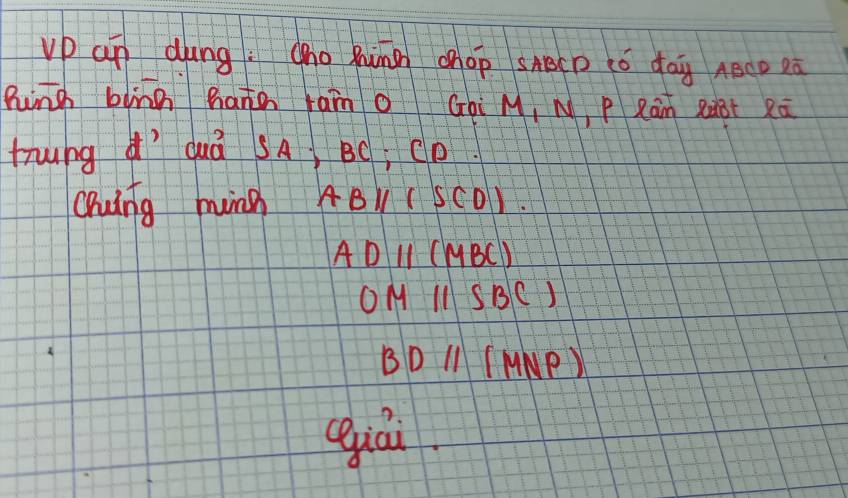 VD áp dụng: Cho hình chóp SABCD có đáy ABCD là
hình bình hành tâm O Gọi M, N, P lần lượt là
trung đ' của SA; BC; CD.
Chứng minh AB // (SCD).
AD // (MBC)
OM // SBC)
BD // (MNP)
Giải.